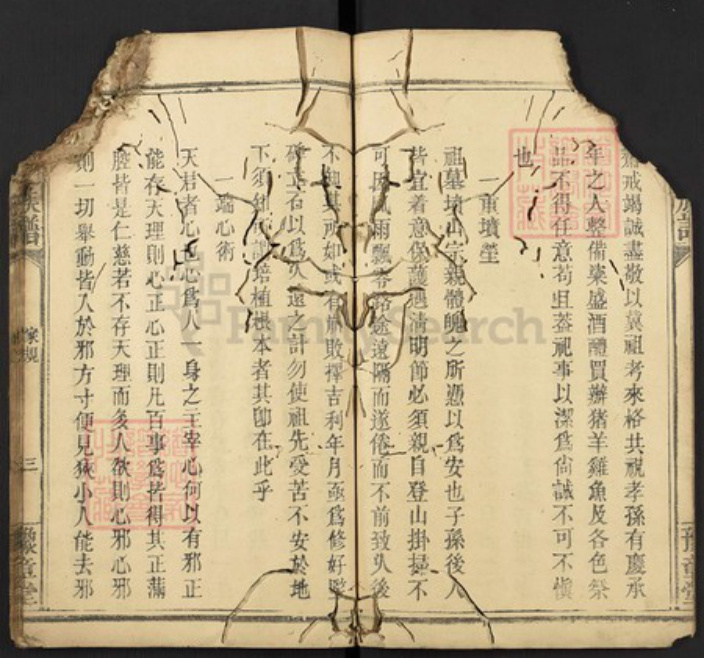 齋戒竭誠盡敬以冀祖考來格共祝孝孫有慶承
年之人整備粢盛酒醴買辦猪羊雞魚及各色祭
品不得任意苟且葢祀事以潔爲尙誠不可不愼
也
一重墳塋
祖墓墳山宗親體魄之所憑以爲安也子孫後人
皆宜着意保護遇淸明節必須親自登山掛掃不
可因風雨飄零路途遠隔而遂倦而不前致久後
不知其所如或有崩敗擇吉利年月亟爲修好
碑立石以爲久遠之計勿使祖先受苦不安於地
下須知所謂培植根本者其卽在此乎
一端心術
天君者心也心爲人一身之主宰心何以有邪正
能存天理則心正心正則凡百事爲皆得其正滿
腔皆是仁慈若不存天理而多人欲則心邪心邪
則一切舉動皆入於邪方寸便見狹小人能去邪
族譜
家規
三
FamilySearch